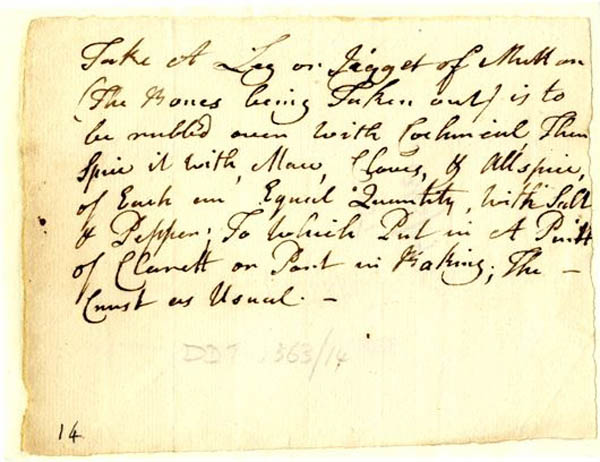 Take A Leg or Jigget of Mutton
(The Bones being Taken out) is to
be rubb'd over with Cochineal, Then
Spice it with, Mace, Cloves, & Allspice,
of Each an Equal Quantity, with Salt
& Pepper; To Which Put in A Pint
of Clarett or Port in Baking; The –
Crust as Usual. –
DDT 563/14
14